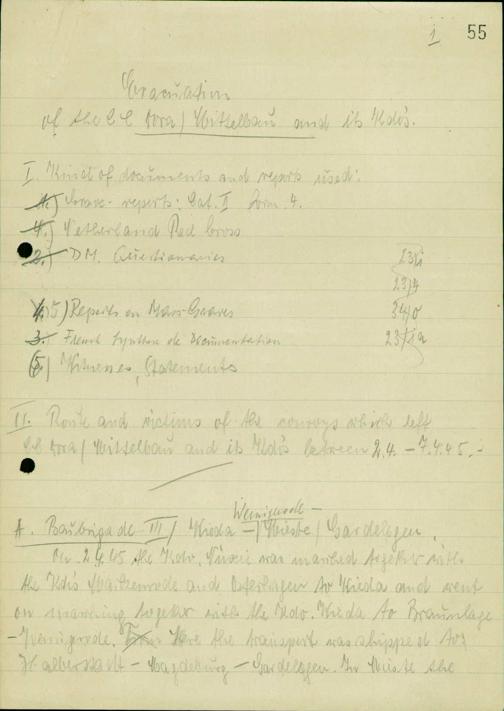 1 55
Evacuation
of the CC Dora/Mittelbau and its Kdo's.
I. Kind of documents and reports used:
1.) Grave-reports: Cat. II form. 4.
4.) Netherland Red Cross
2.) DM. Questionaries
5) Reports on Mass-Graves 34/0
3.) French Synthese de Documentation
(5) Witnesses, Statements
II. Route and victims of the convoys which left
CC Dora/Mittelbau and its Kdo's between 2.4. – 7.4.45.-
Wernigerode –
A. Baubrigade III/ Wieda –/Mieste/Gardelegen.
On 2.4.45 the Kdo. was marched together with
the Kdo's Mackenrode and Osterhagen to Wieda and went
on marching together with the Kdo. Wieda to Braunlage
– Wernigerode. From Here the transport was shipped to
Halberstadt – Magdeburg – Gardelegen. In Mieste the